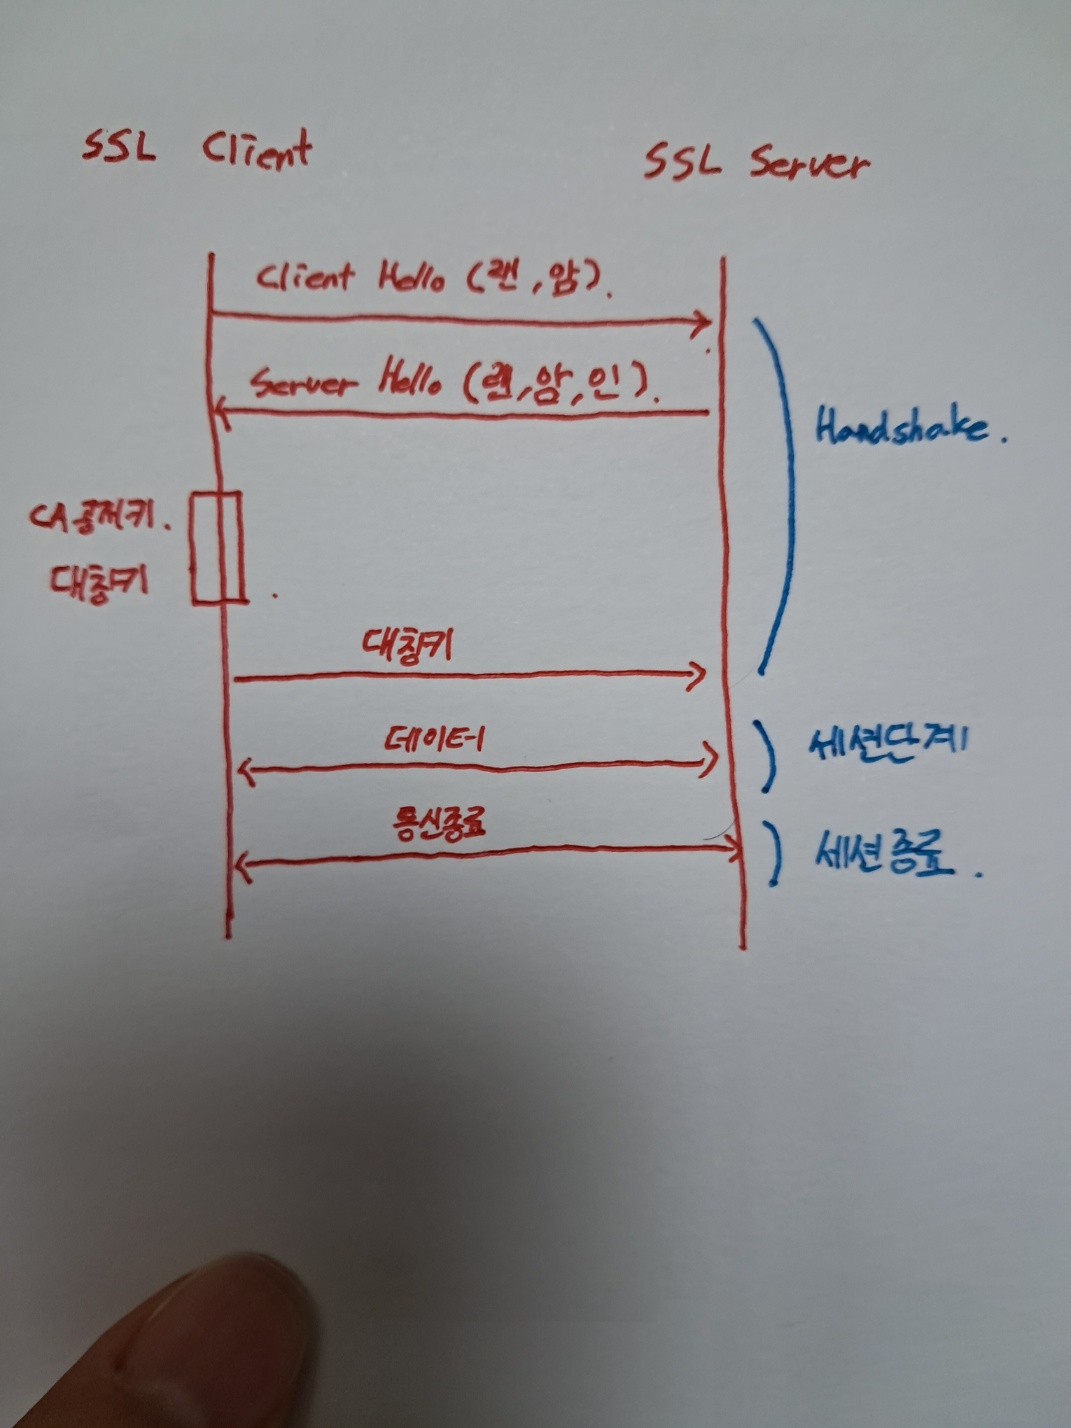 SSL Client
SSL Server
Client Hello (랜, 암).
Server Hello (랜, 암, 인).
Handshake.
CA공개키.
대칭키
대칭키
데이터
세션단계
통신종료
세션종료.